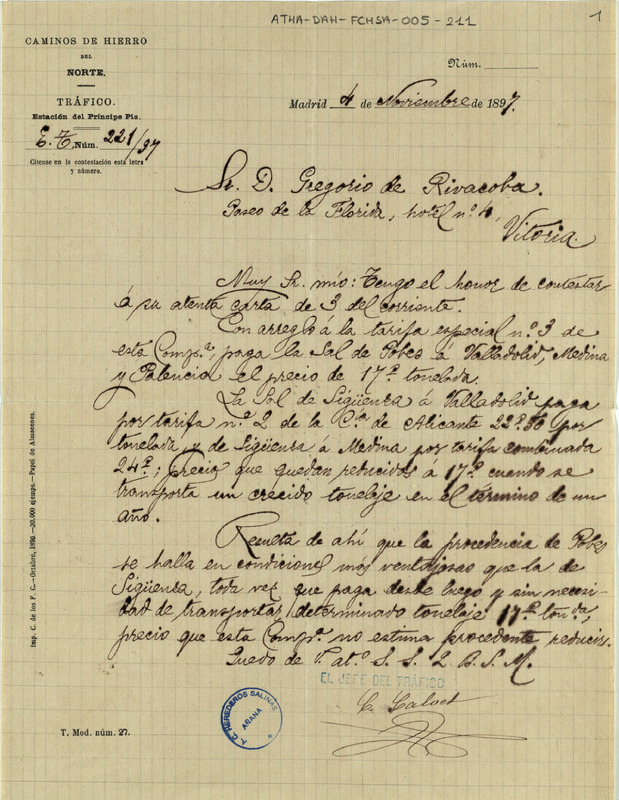 ATHA-DAH-FCHSA-005-211
1
CAMINOS DE HIERRO
DEL
NORTE.
TRÁFICO.
Estación del Príncipe Pío.
E. T. Núm. 221/97
Cítense en la contestación esta letra
y número.
Núm.
Madrid 4 de Noviembre de 1897.
Sr. D. Gregorio de Rivacoba.
Paseo de la Florida, hotel nº 4,
Vitoria.
Muy Sr. mío: Tengo el honor de contestar
á su atenta carta de 3 del corriente.
Con arreglo á la tarifa especial nº 3 de
esta Compª, paga la Sal de Pobes á Valladolid, Medina
y Palencia el precio de 17 p. tonelada.
La Sal de Sigüenza á Valladolid paga
por tarifa nº 2 de la Cª de Alicante 22 p. 50 por
tonelada y de Sigüenza á Medina por tarifa combinada
24 p.; precios que quedan reducidos á 17 p. cuando se
transporta un crecido tonelaje en el término de un
año.
Resulta de ahí que la procedencia de Pobes
se halla en condiciones mas ventajosas que la de
Sigüenza, toda vez que paga desde luego y sin necesi-
dad de transportar determinado tonelaje 17 p. tonda,
precio que esta Compª no estima procedente reducir.
Quedo de V. atº S. S. Q. B. S. M.
EL JEFE DEL TRÁFICO
A. C. HEREDEROS SALINAS
AÑANA
T. Mod. núm. 27.
Imp. C. de los F. C.—Octubre, 1896.—20.000 ejemps.—Papel de Almacenes.